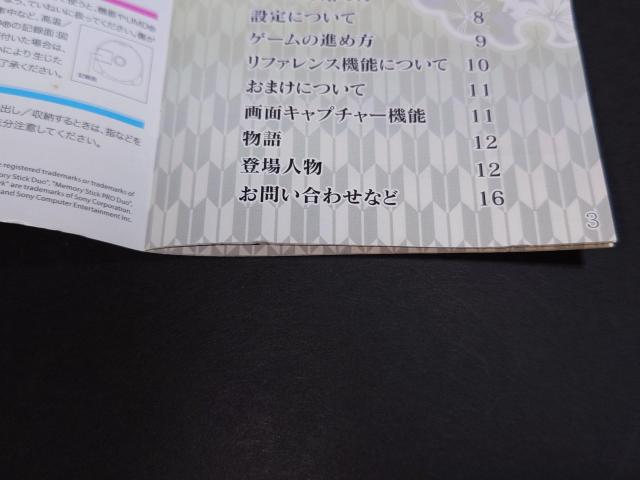 ださい。衝
車中など、高温
の記録面(図
付いた場合は、
により生じた
了承ください。
記録面
出し/収納するときは、指などを
分注意してください。
registered trademarks or trademarks of
ory Stick Duo", "Memory Stick PRO Duo",
rk" are trademarks of Sony Corporation.
and Sony Computer Entertainment Inc.
設定について 8
ゲームの進め方 9
リファレンス機能について 10
おまけについて 11
画面キャプチャー機能 11
物語 12
登場人物 12
お問い合わせなど 16
3